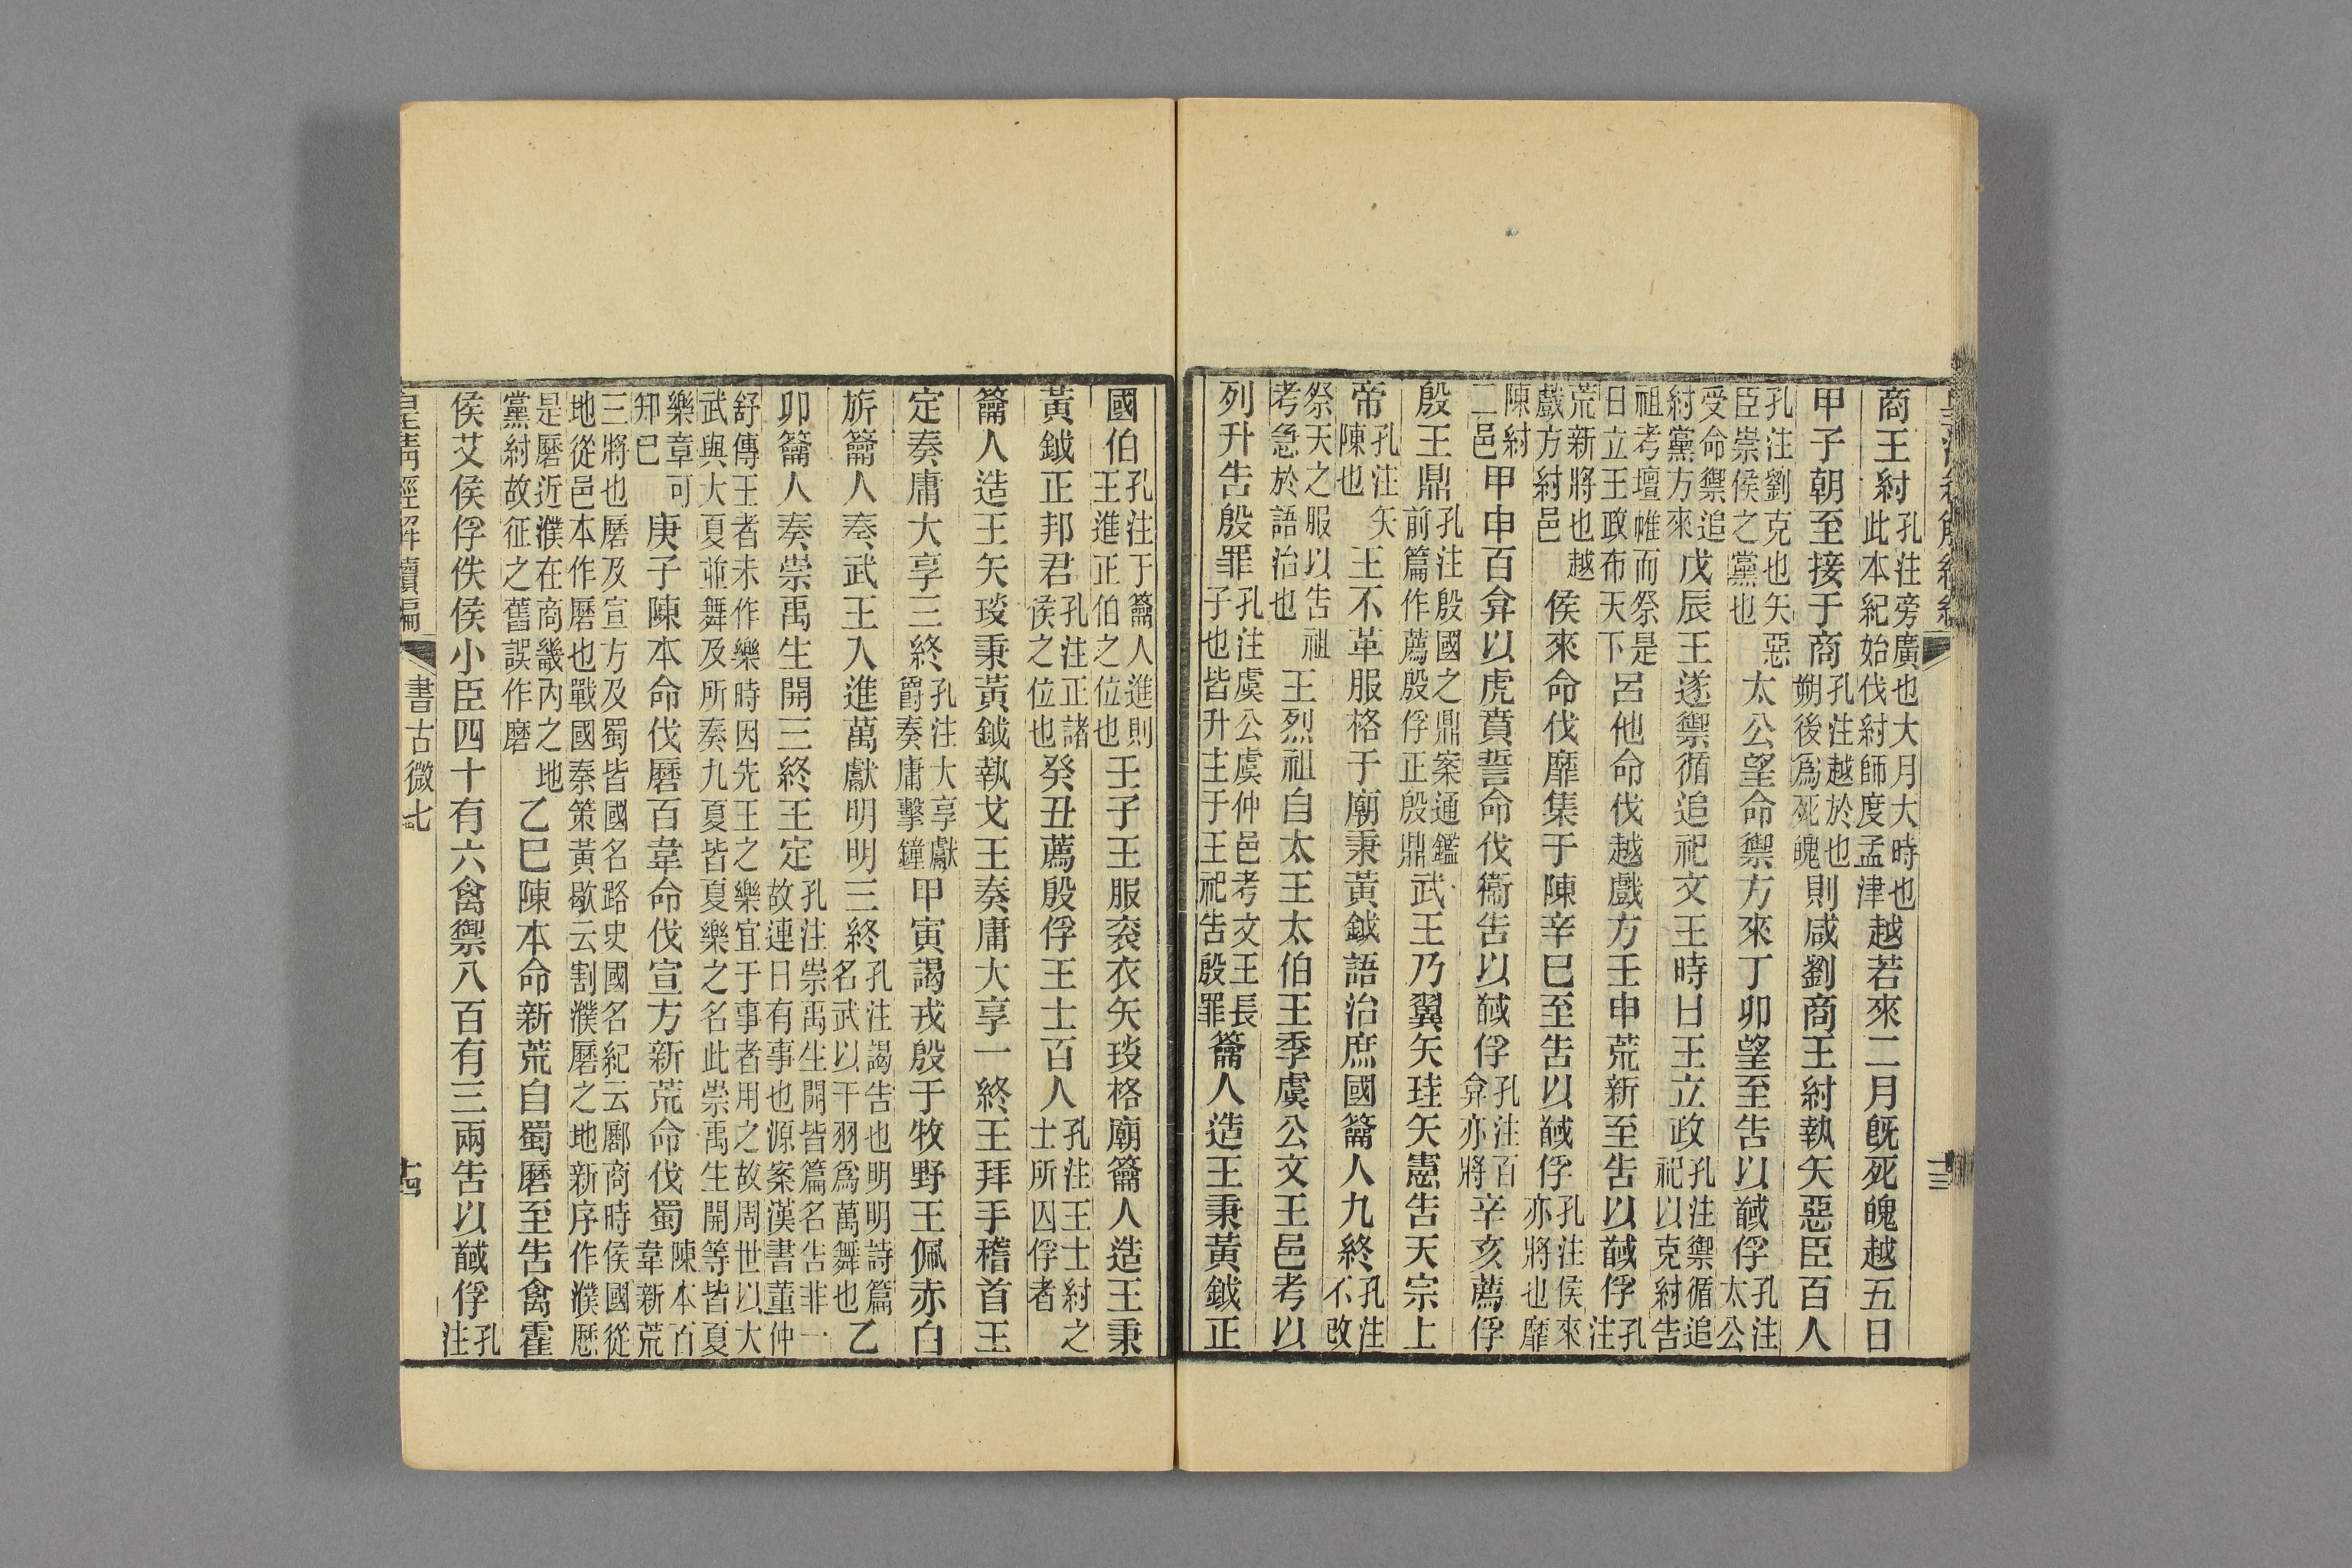 商王紂孔注旁廣也大月大時也此本紀始伐紂師度孟津越若來二月旣死魄越五日
甲子朝至接于商孔注越於也朔後爲死魄則咸劉商王紂執矢惡臣百人
孔注劉克也矢惡臣崇侯之黨也太公望命禦方來丁卯望至告以馘俘孔注太公
受命禦追紂黨方來戊辰王遂禦循追祀文王時日王立政孔注禦循追祀以克紂告
祖考壇帷而祭是日立王政布天下呂他命伐越戲方壬申荒新至告以馘俘孔注
荒新將也越戲方紂邑侯來命伐靡集于陳辛巳至告以馘俘孔注侯來亦將也靡
陳紂二邑甲申百弇以虎賁誓命伐衞告以馘俘孔注百弇亦將辛亥薦俘
殷王鼎孔注殷國之鼎案通鑑前篇作薦殷俘正殷鼎武王乃翼矢珪矢憲告天宗上
帝孔注矢陳也王不革服格于廟秉黃鉞語治庶國籥人九終孔注不改
祭天之服以告祖考急於語治也王烈祖自太王太伯王季虞公文王邑考以
列升告殷罪孔注虞公虞仲邑考文王長子也皆升主于王祀告殷罪籥人造王秉黃鉞正
國伯孔注于籥人進則王進正伯之位也壬子王服袞衣矢琰格廟籥人造王秉
黃鉞正邦君孔注正諸侯之位也癸丑薦殷俘王士百人孔注王士紂之士所囚俘者
籥人造王矢琰秉黃鉞執戈王奏庸大享一終王拜手稽首王
定奏庸大享三終孔注大享獻爵奏庸擊鐘甲寅謁戎殷于牧野王佩赤白
旂籥人奏武王入進萬獻明明三終孔注謁告也明明詩篇名武以干羽爲萬舞也乙
卯籥人奏崇禹生開三終王定孔注崇禹生開皆篇名告非一故連日有事也源案漢書董仲
舒傳王者未作樂時因先王之樂宜于事者用之故周世以大武與大夏並舞及所奏九夏皆夏樂之名此崇禹生開等皆夏
樂章可知巳庚子陳本命伐磿百韋命伐宣方新荒命伐蜀陳本百韋新荒
三將也磿及宣方及蜀皆國名路史國名紀云鄌商時侯國從地從邑本作磿也戰國秦策黃歇云割濮磿之地新序作濮歷
是磿近濮在商畿內之地黨紂故征之舊誤作磨乙巳陳本命新荒自蜀磿至告禽霍
侯艾侯俘佚侯小臣四十有六禽禦八百有三兩告以馘俘孔注
皇淸經解續編
書古微七
十四